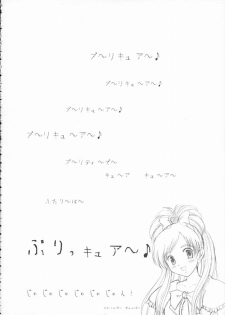 プ〜リキュア〜♪
プ〜リキュ〜ア〜♪
プ〜リキュ〜ア〜♪
プ〜リキュ〜ア〜♪
プ〜リティ〜ぞ〜
キュ〜ア キュ〜ア〜
ふたり〜は〜
ぷりっキュア〜♪
じゃじゃじゃじゃじゃん!